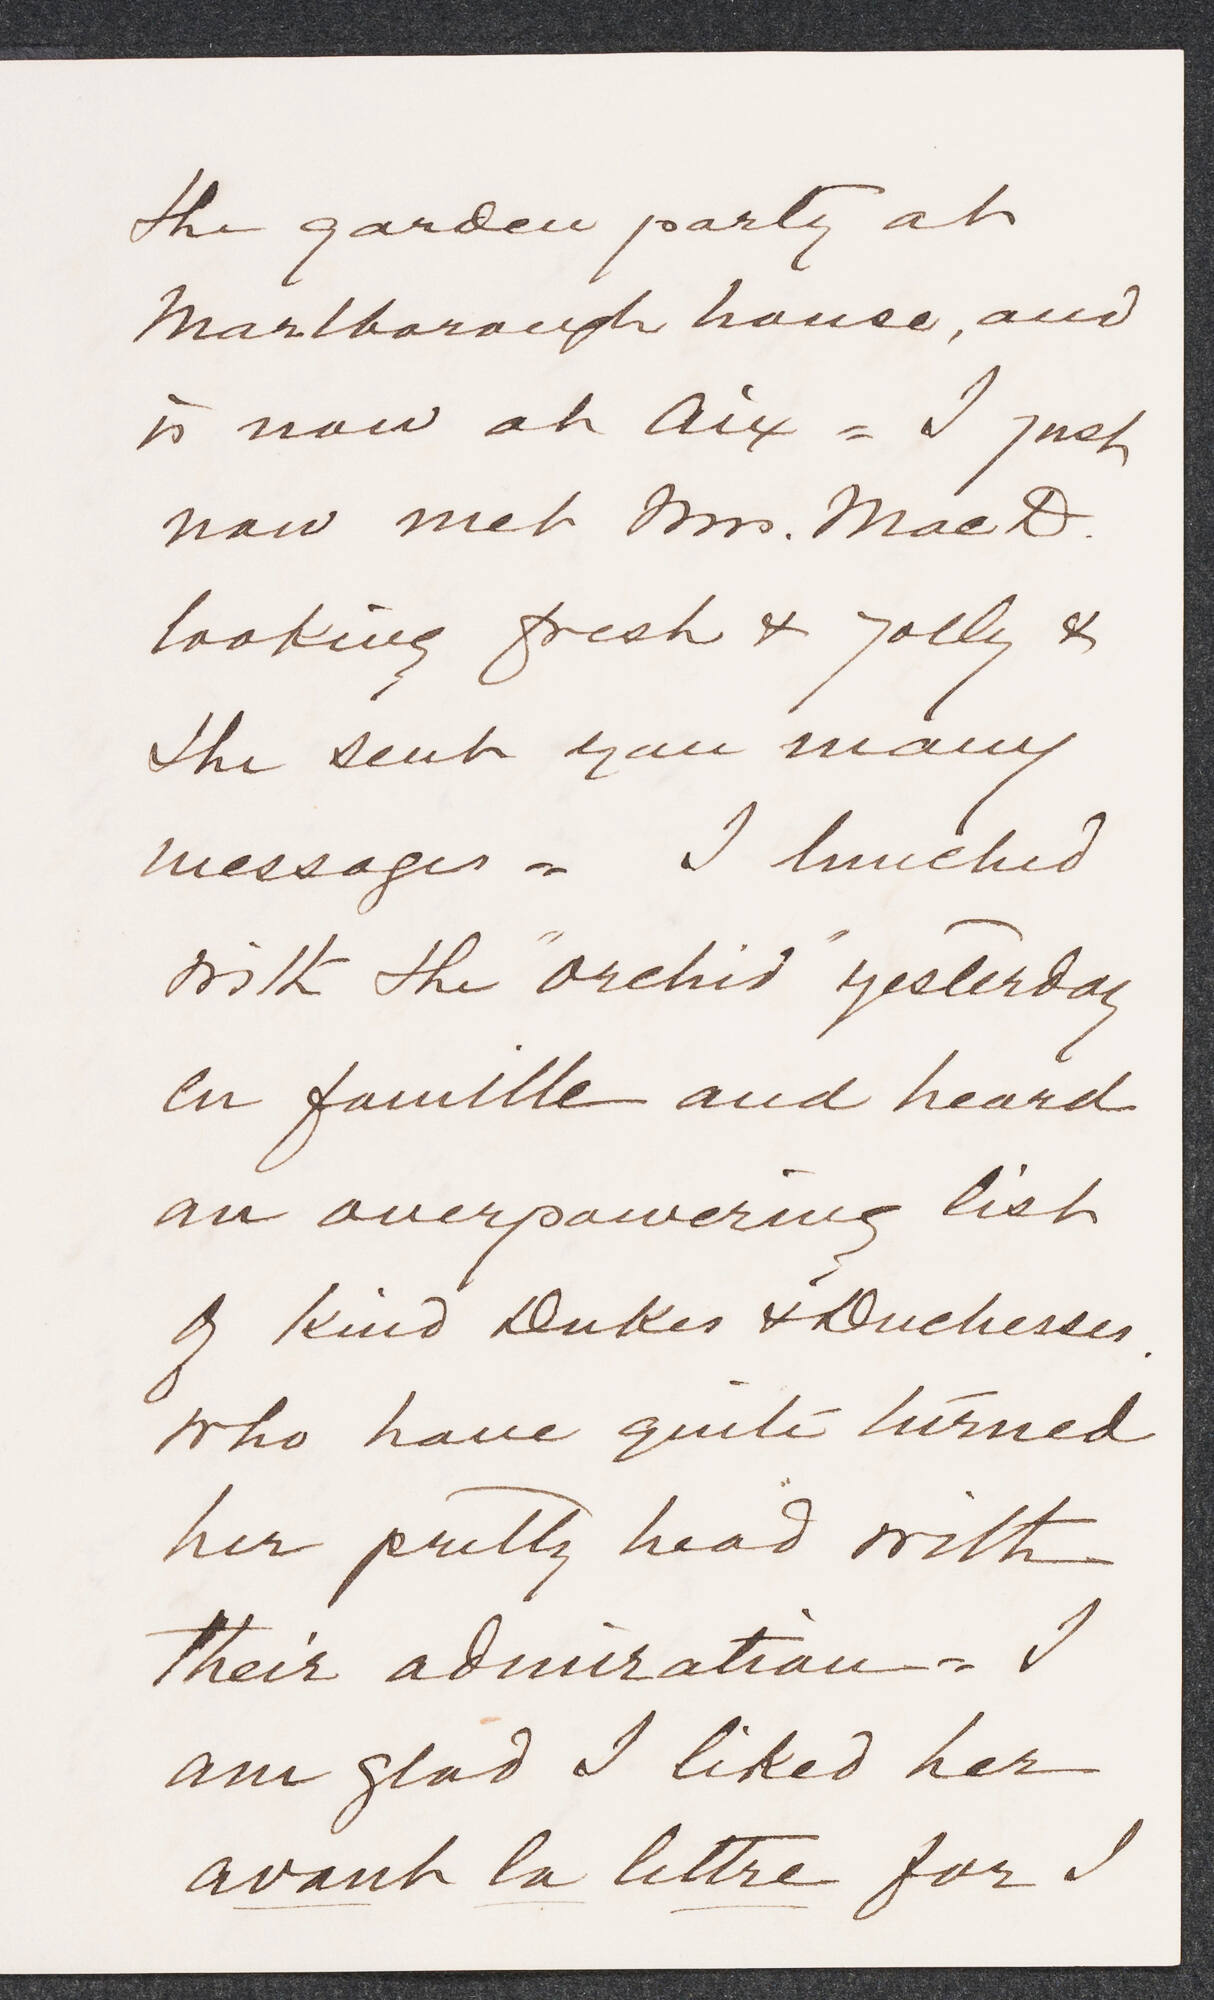 the garden party at
Marlborough house, and
is now at Aix = I just
now met Mrs. MacD.
looking fresh & jolly &
she sent you many
messages = I lunched
with the "orchid" yesterday
en famille and heard
an overpowering list
of kind Dukes & Duchesses.
who have quite turned
her pretty head with
their admiration = I
am glad I liked her
avant la lettre for I